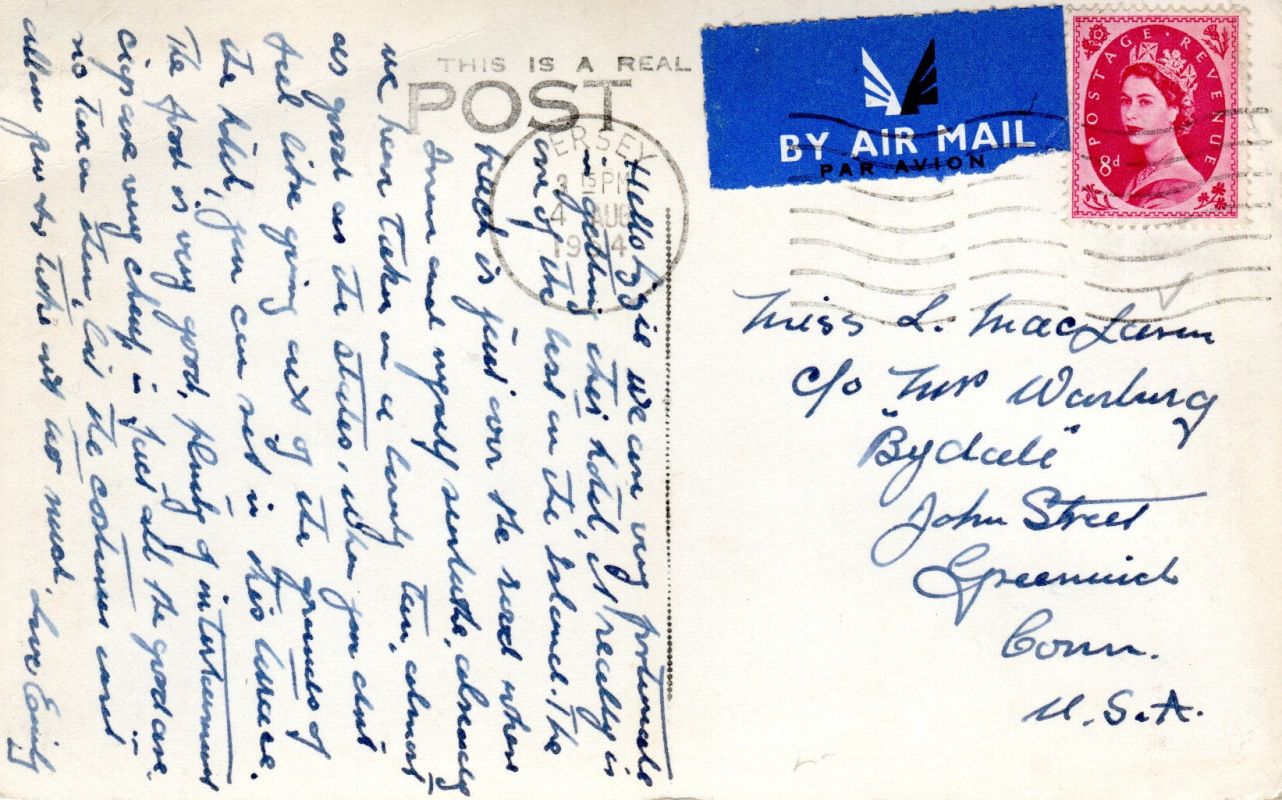 THIS IS A REAL
POST
JERSEY
3 15 PM
4 AUG
19 4
BY AIR MAIL
PAR AVION
POSTAGE REVENUE
8d
Hello Izzie we are very fortunate
in getting this hotel, it really is
one of the best in the Island. The
beach is just over the road where
and myself sunbathe, already
we have taken on a lovely tan, almost
as good as the states, when you don't
feel like going out of the grounds of
the hotel, you can rest in this terrace.
The food is very good, plenty of intertainment
cigs are very cheap in fact all the goods are.
no tax on them, but the customs wont
allow you to take out too much. Love Emily
Miss L. MacLaren
c/o Mrs Warburg
"Bydale"
John Street
Greenwich
Conn.
U.S.A.